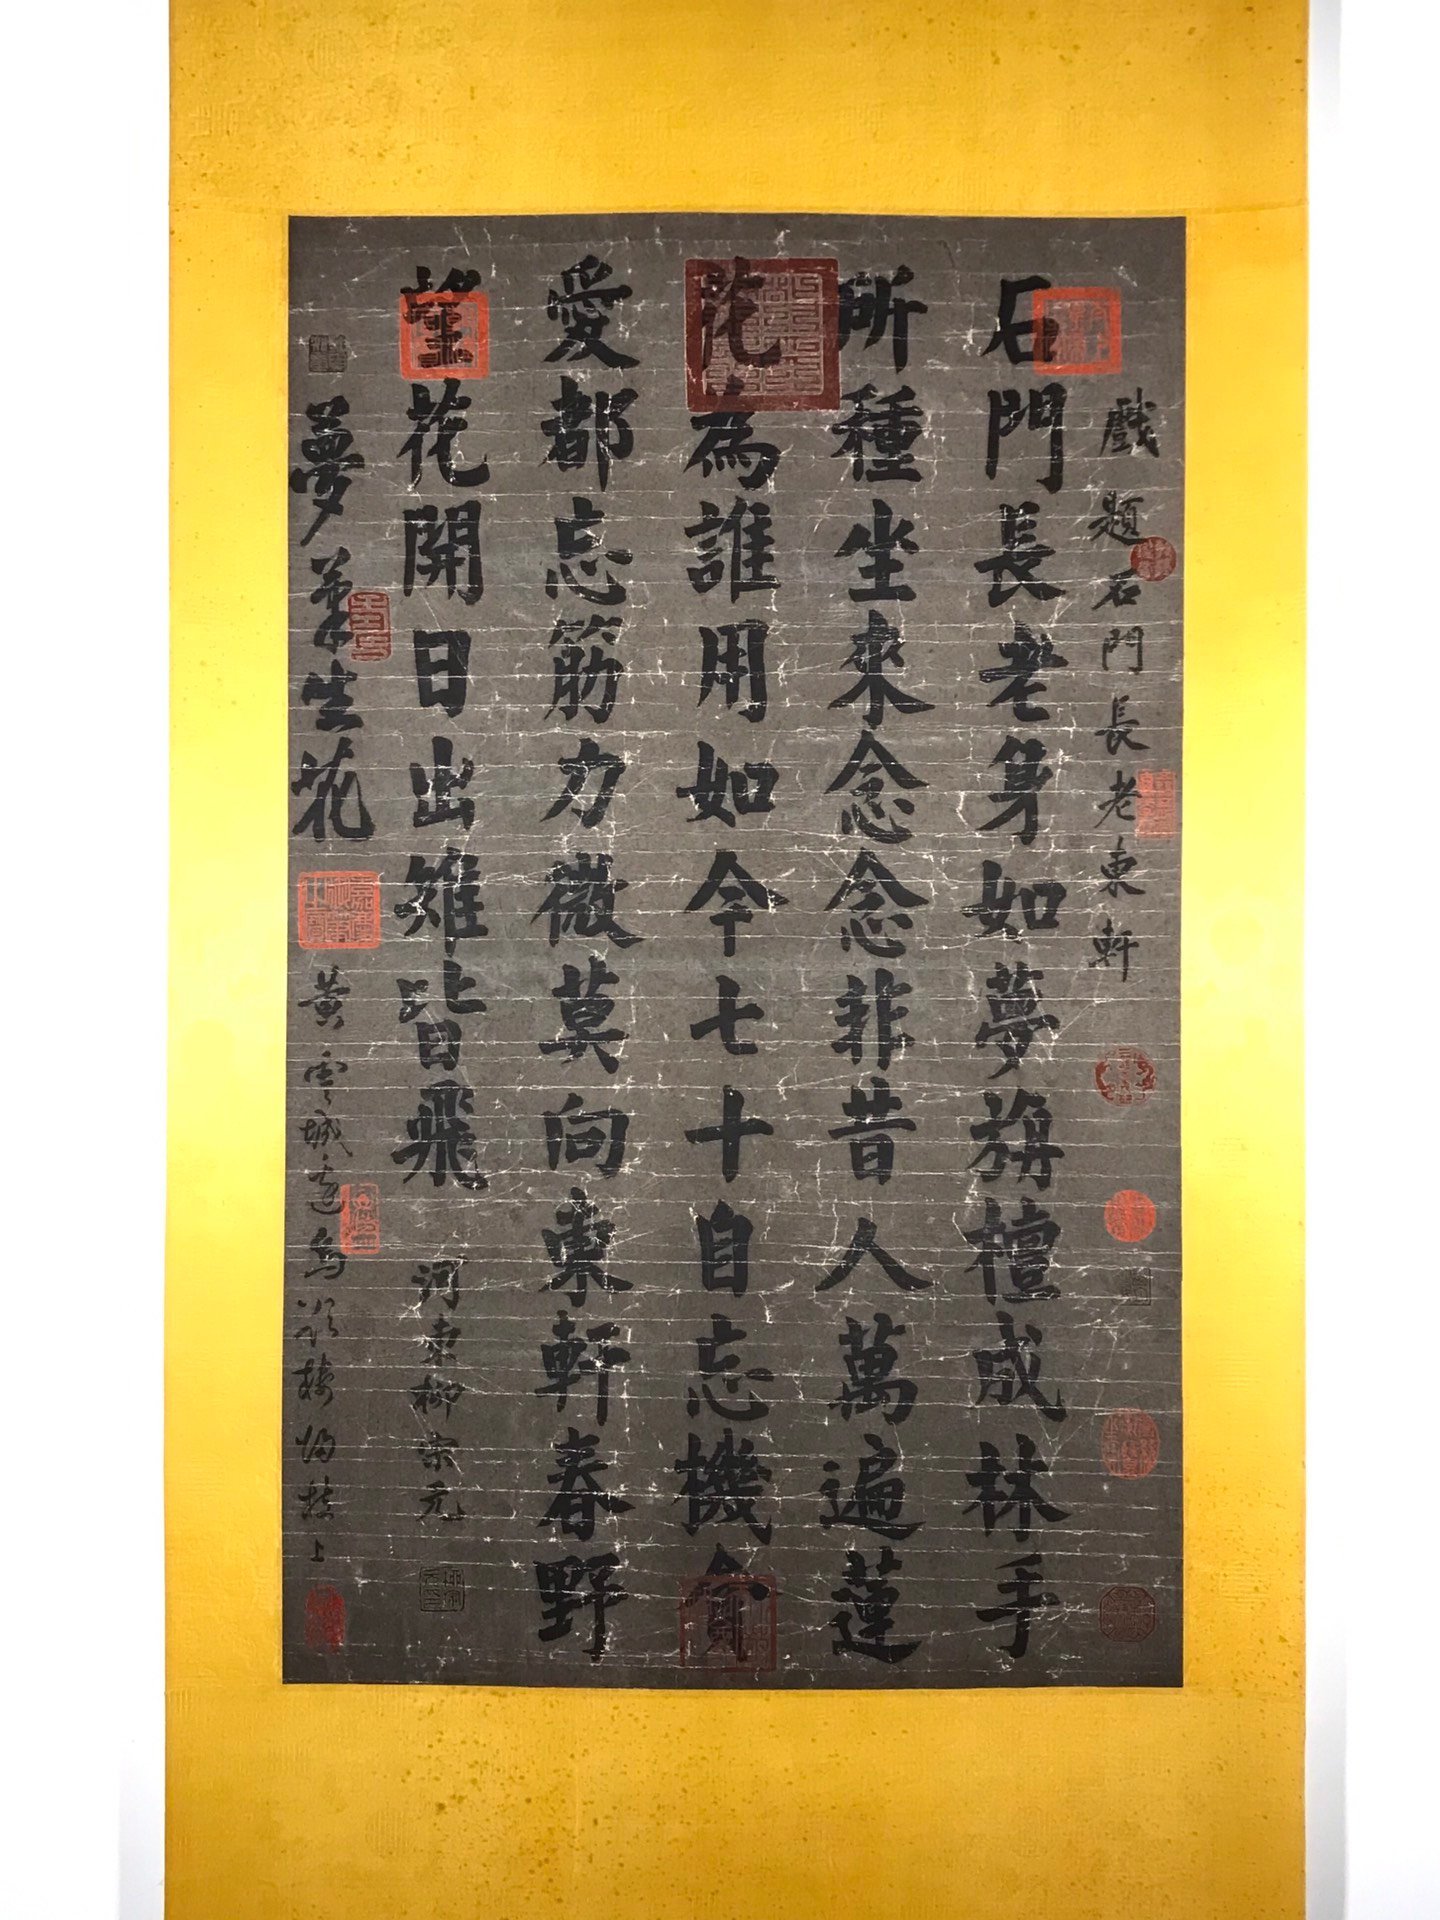 戲題石門長老東軒
石門長老身如夢旃檀成林手
所種坐來念念非昔人萬遍蓮
花為誰用如今七十自忘機貪
愛都忘筋力微莫向東軒春野
望花開日出雉皆飛
河東柳宗元
夢筆生花
黃雲城邊烏欲棲歸枝上